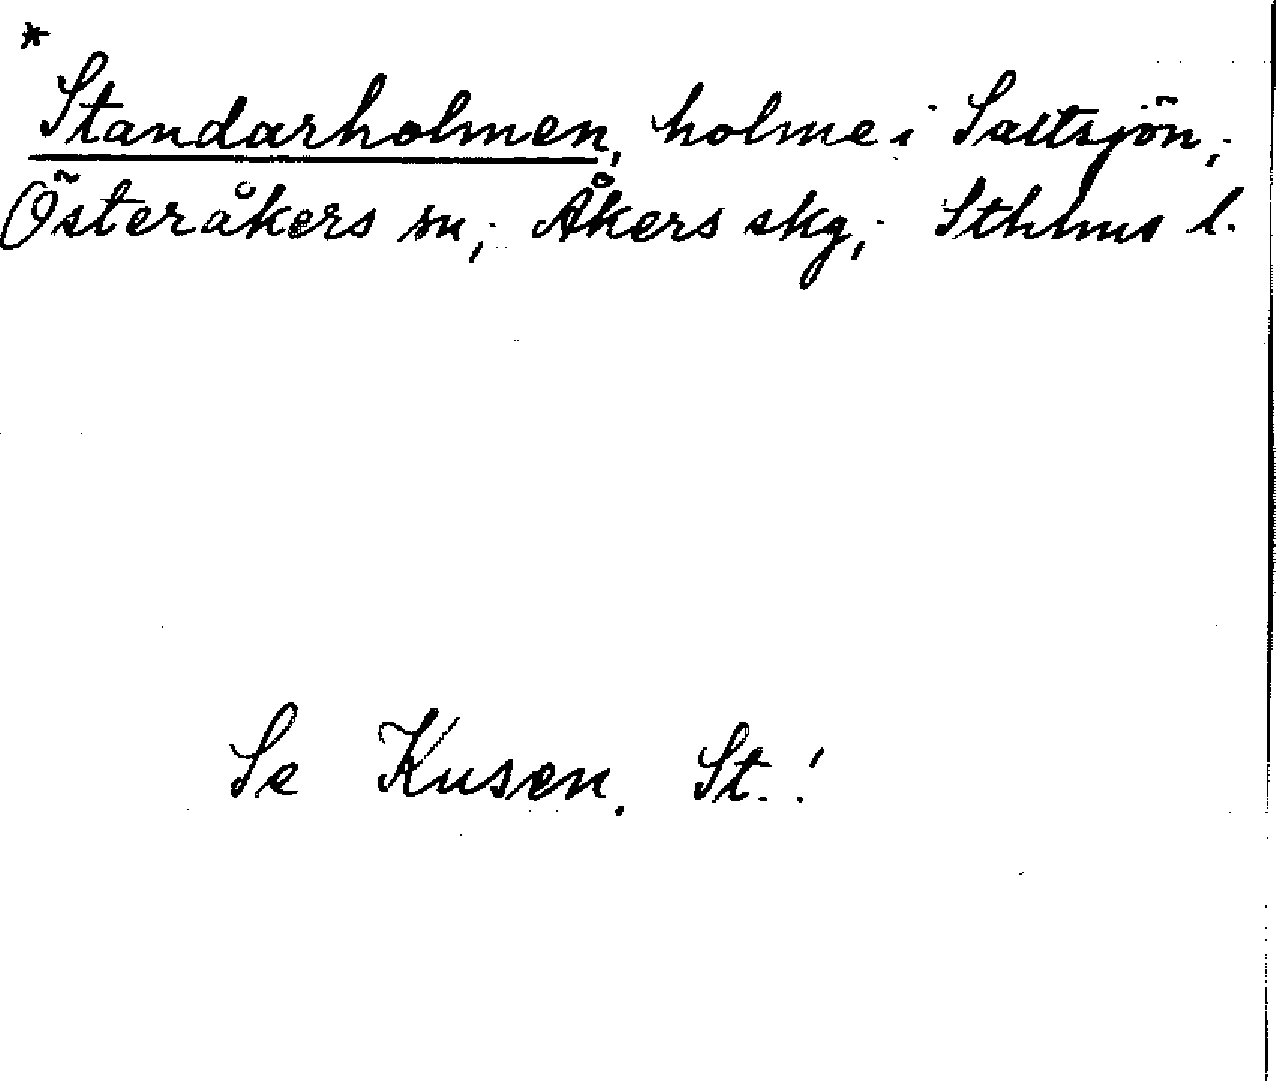 *
Standarholmen, holme i Saltsjön,
Österåkers sn, Åkers skg, Sthlms l.
Se Kusen. St.!